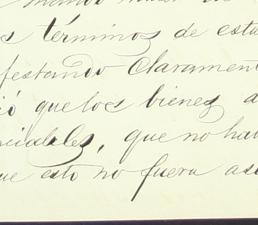 s términos de esta
festando claramen
ió que los bienes a
que no ha
ue esto no fuera as